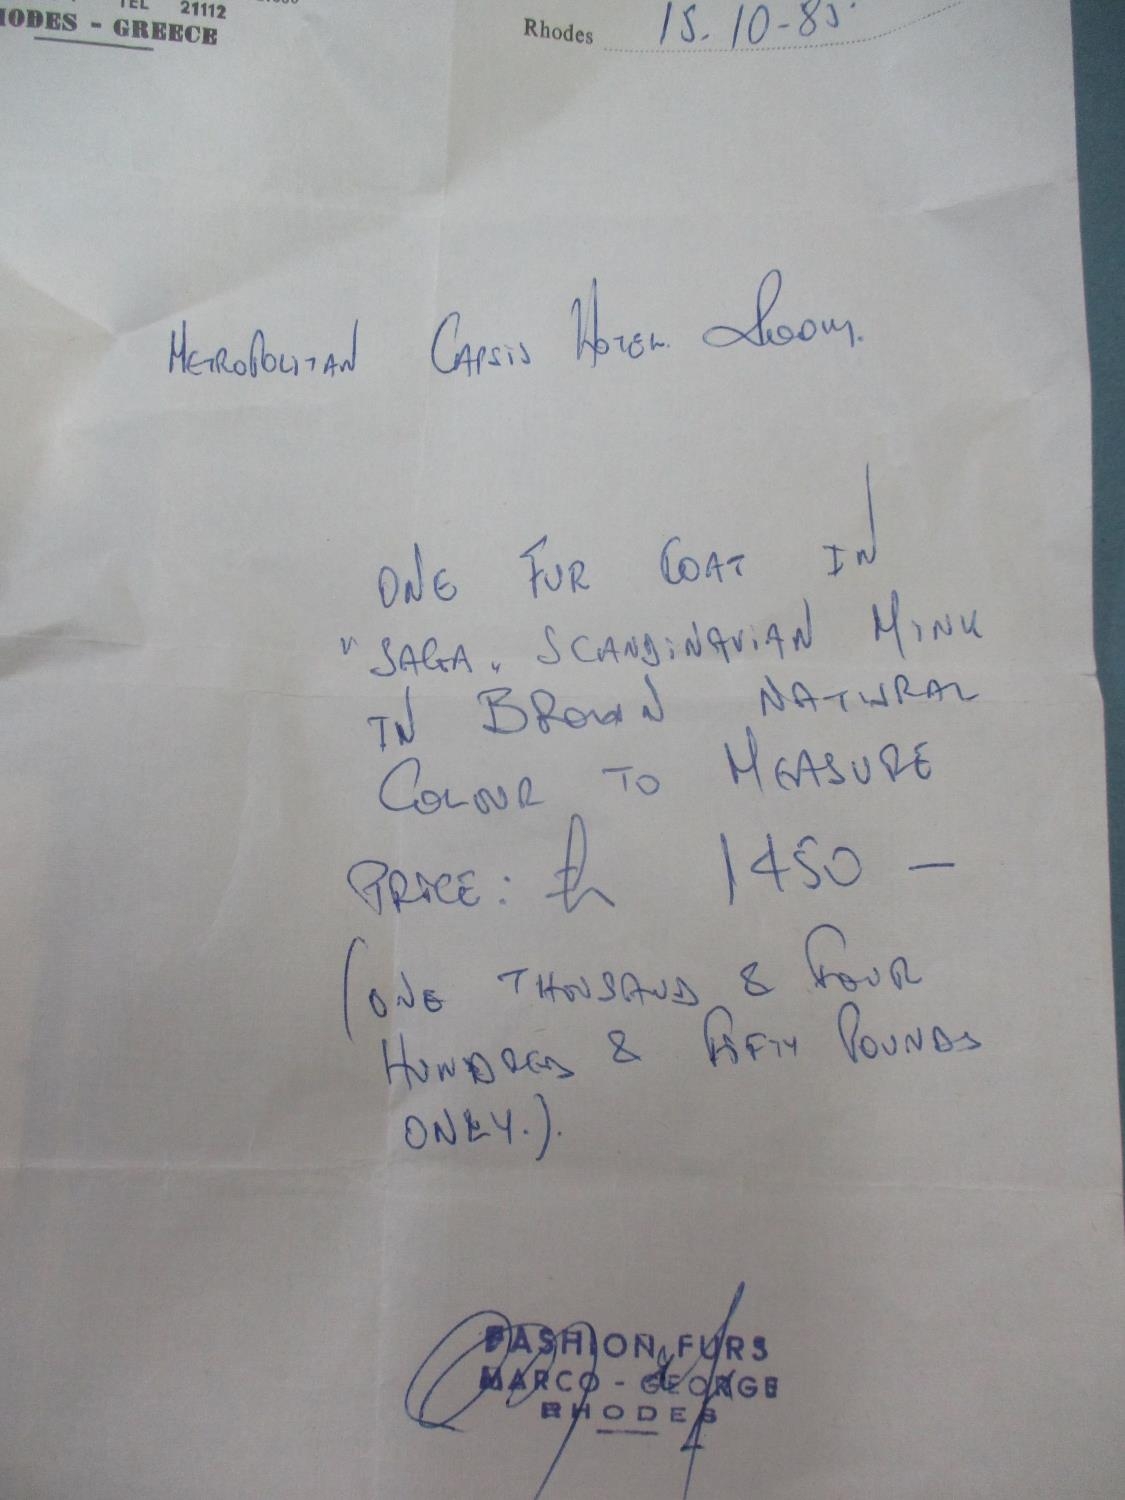 TEL 21112
RHODES - GREECE
Rhodes 15.10-85.
METROPOLITAN CAPSIS HOTEL.
ONE FUR COAT IN
"SAGA" SCANDINAVIAN MINK
IN BROWN NATURAL
COLOUR TO MEASURE
PRICE: £ 1450 —
(ONE THOUSAND & FOUR
HUNDRED & FIFTY POUNDS
ONLY.).
FASHION FURS
MARCO - GEORGE
RHODES